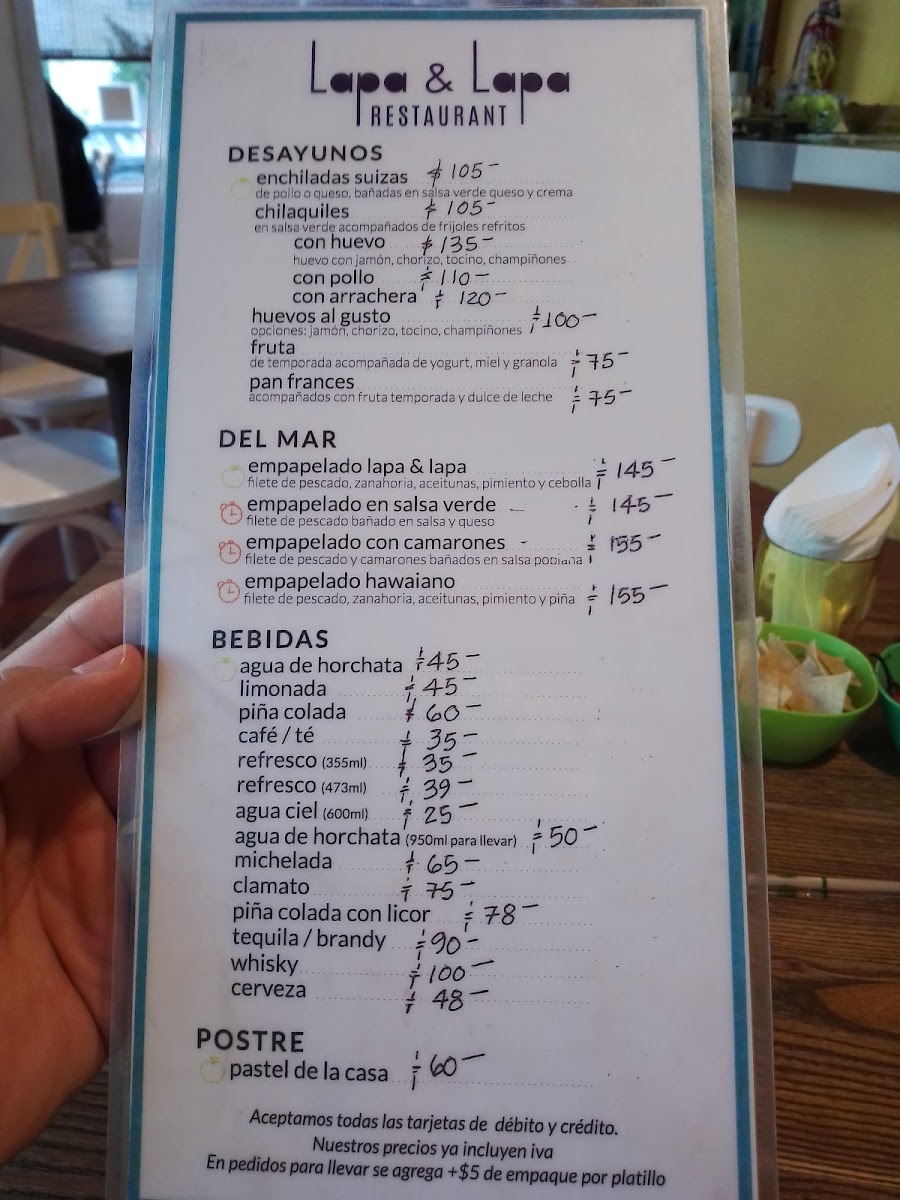 Lapa & Lapa
RESTAURANT
DESAYUNOS
enchiladas suizas $ 105-
de pollo o queso, bañadas en salsa verde queso y crema
chilaquiles $ 105-
en salsa verde acompañados de frijoles refritos
con huevo $ 135-
huevo con jamón, chorizo, tocino, champiñones
con pollo $ 110-
con arrachera $ 120-
huevos al gusto $ 100-
opciones: jamón, chorizo, tocino, champiñones
fruta
de temporada acompañada de yogurt, miel y granola $ 75-
pan frances
acompañados con fruta temporada y dulce de leche $ 75-
DEL MAR
empapelado lapa & lapa $ 145-
filete de pescado, zanahoria, aceitunas, pimiento y cebolla
empapelado en salsa verde $ 145-
filete de pescado bañado en salsa y queso
empapelado con camarones $ 155-
filete de pescado y camarones bañados en salsa poblana
empapelado hawaiano $ 155-
filete de pescado, zanahoria, aceitunas, pimiento y piña
BEBIDAS
agua de horchata $ 45-
limonada $ 45-
piña colada $ 60-
café / té $ 35-
refresco (355ml) $ 35-
refresco (473ml) $ 39-
agua ciel (600ml) $ 25-
agua de horchata (950ml para llevar) $ 50-
michelada $ 65-
clamato $ 75-
piña colada con licor $ 78-
tequila / brandy $ 90-
whisky $ 100-
cerveza $ 48-
POSTRE
pastel de la casa $ 60-
Aceptamos todas las tarjetas de débito y crédito.
Nuestros precios ya incluyen iva
En pedidos para llevar se agrega +$5 de empaque por platillo